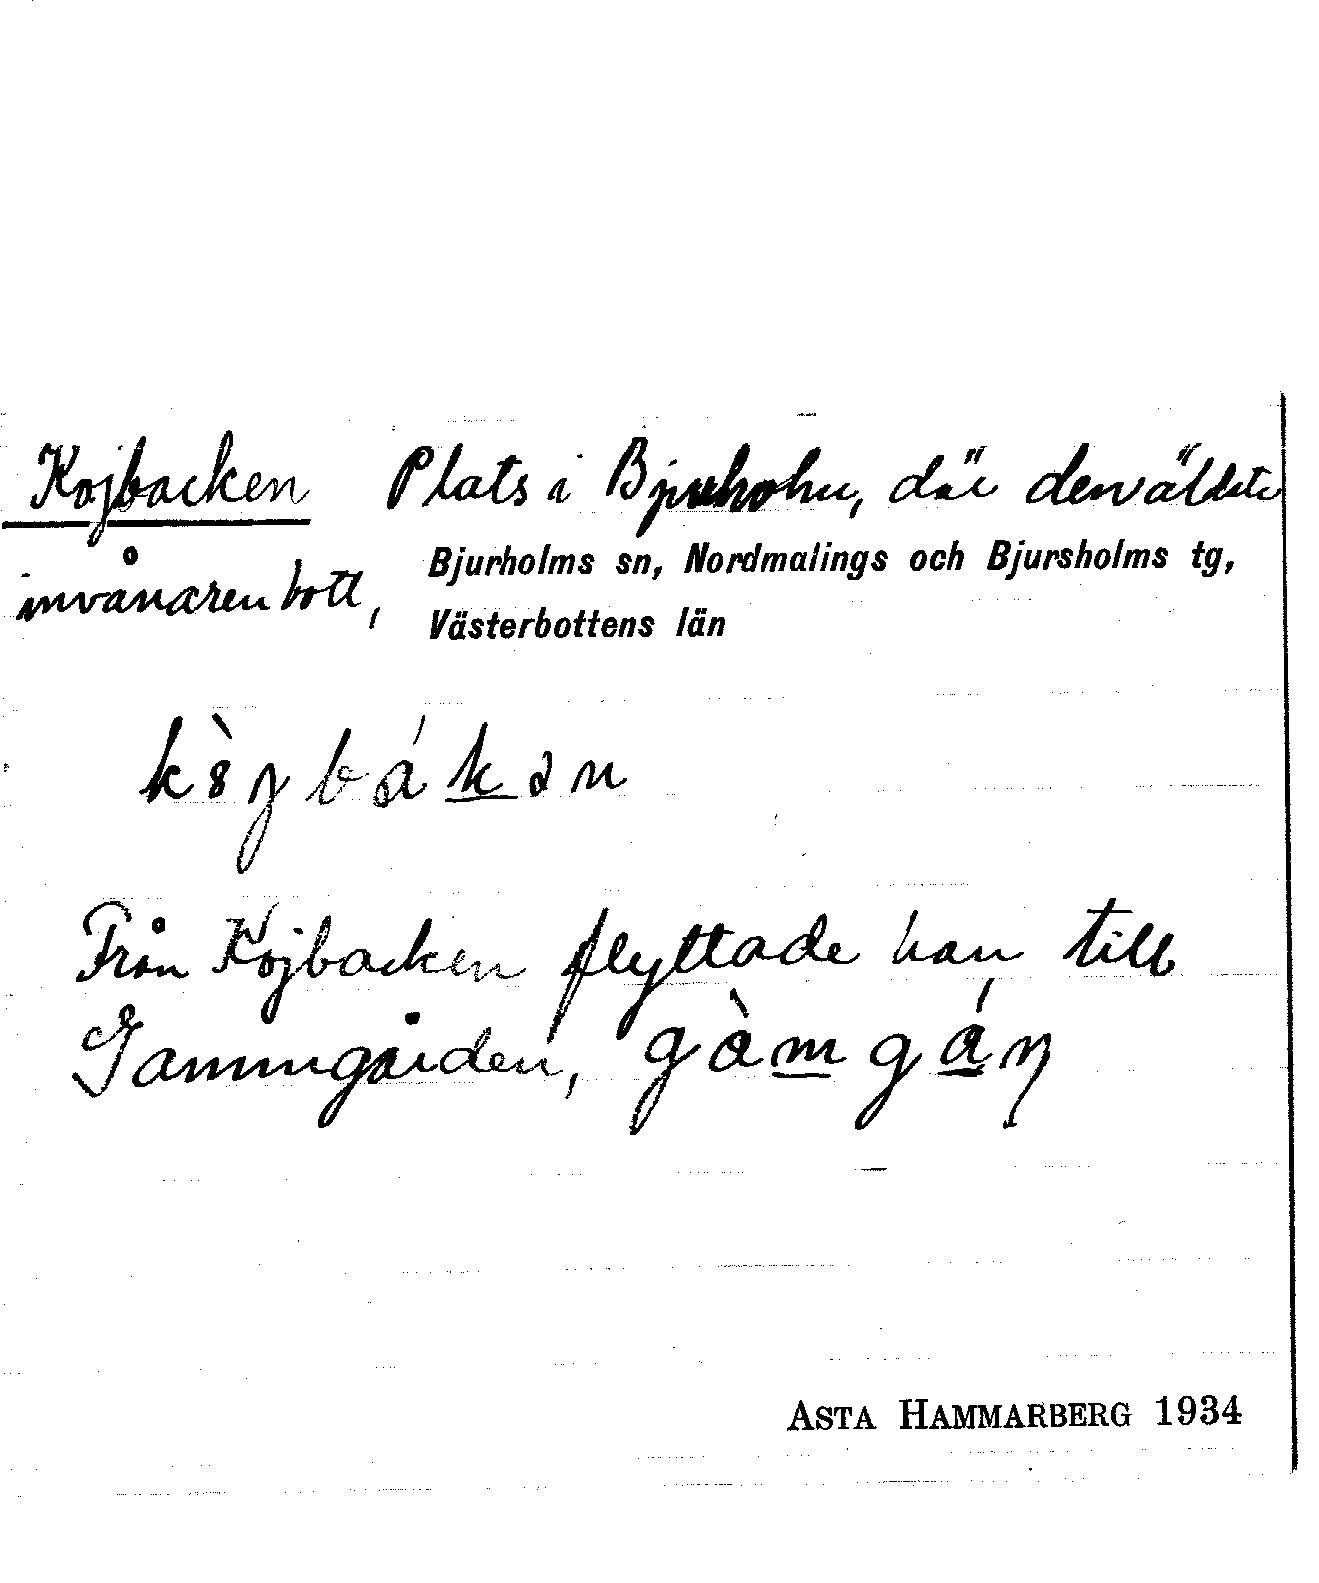 Kojbacken Plats i Bjurholm, där den äldste
invånaren bott,
Bjurholms sn, Nordmalings och Bjursholms tg,
Västerbottens län
Från Kojbacken flyttade han till
Gammgården, gàmgáɳ
ASTA HAMMARBERG 1934